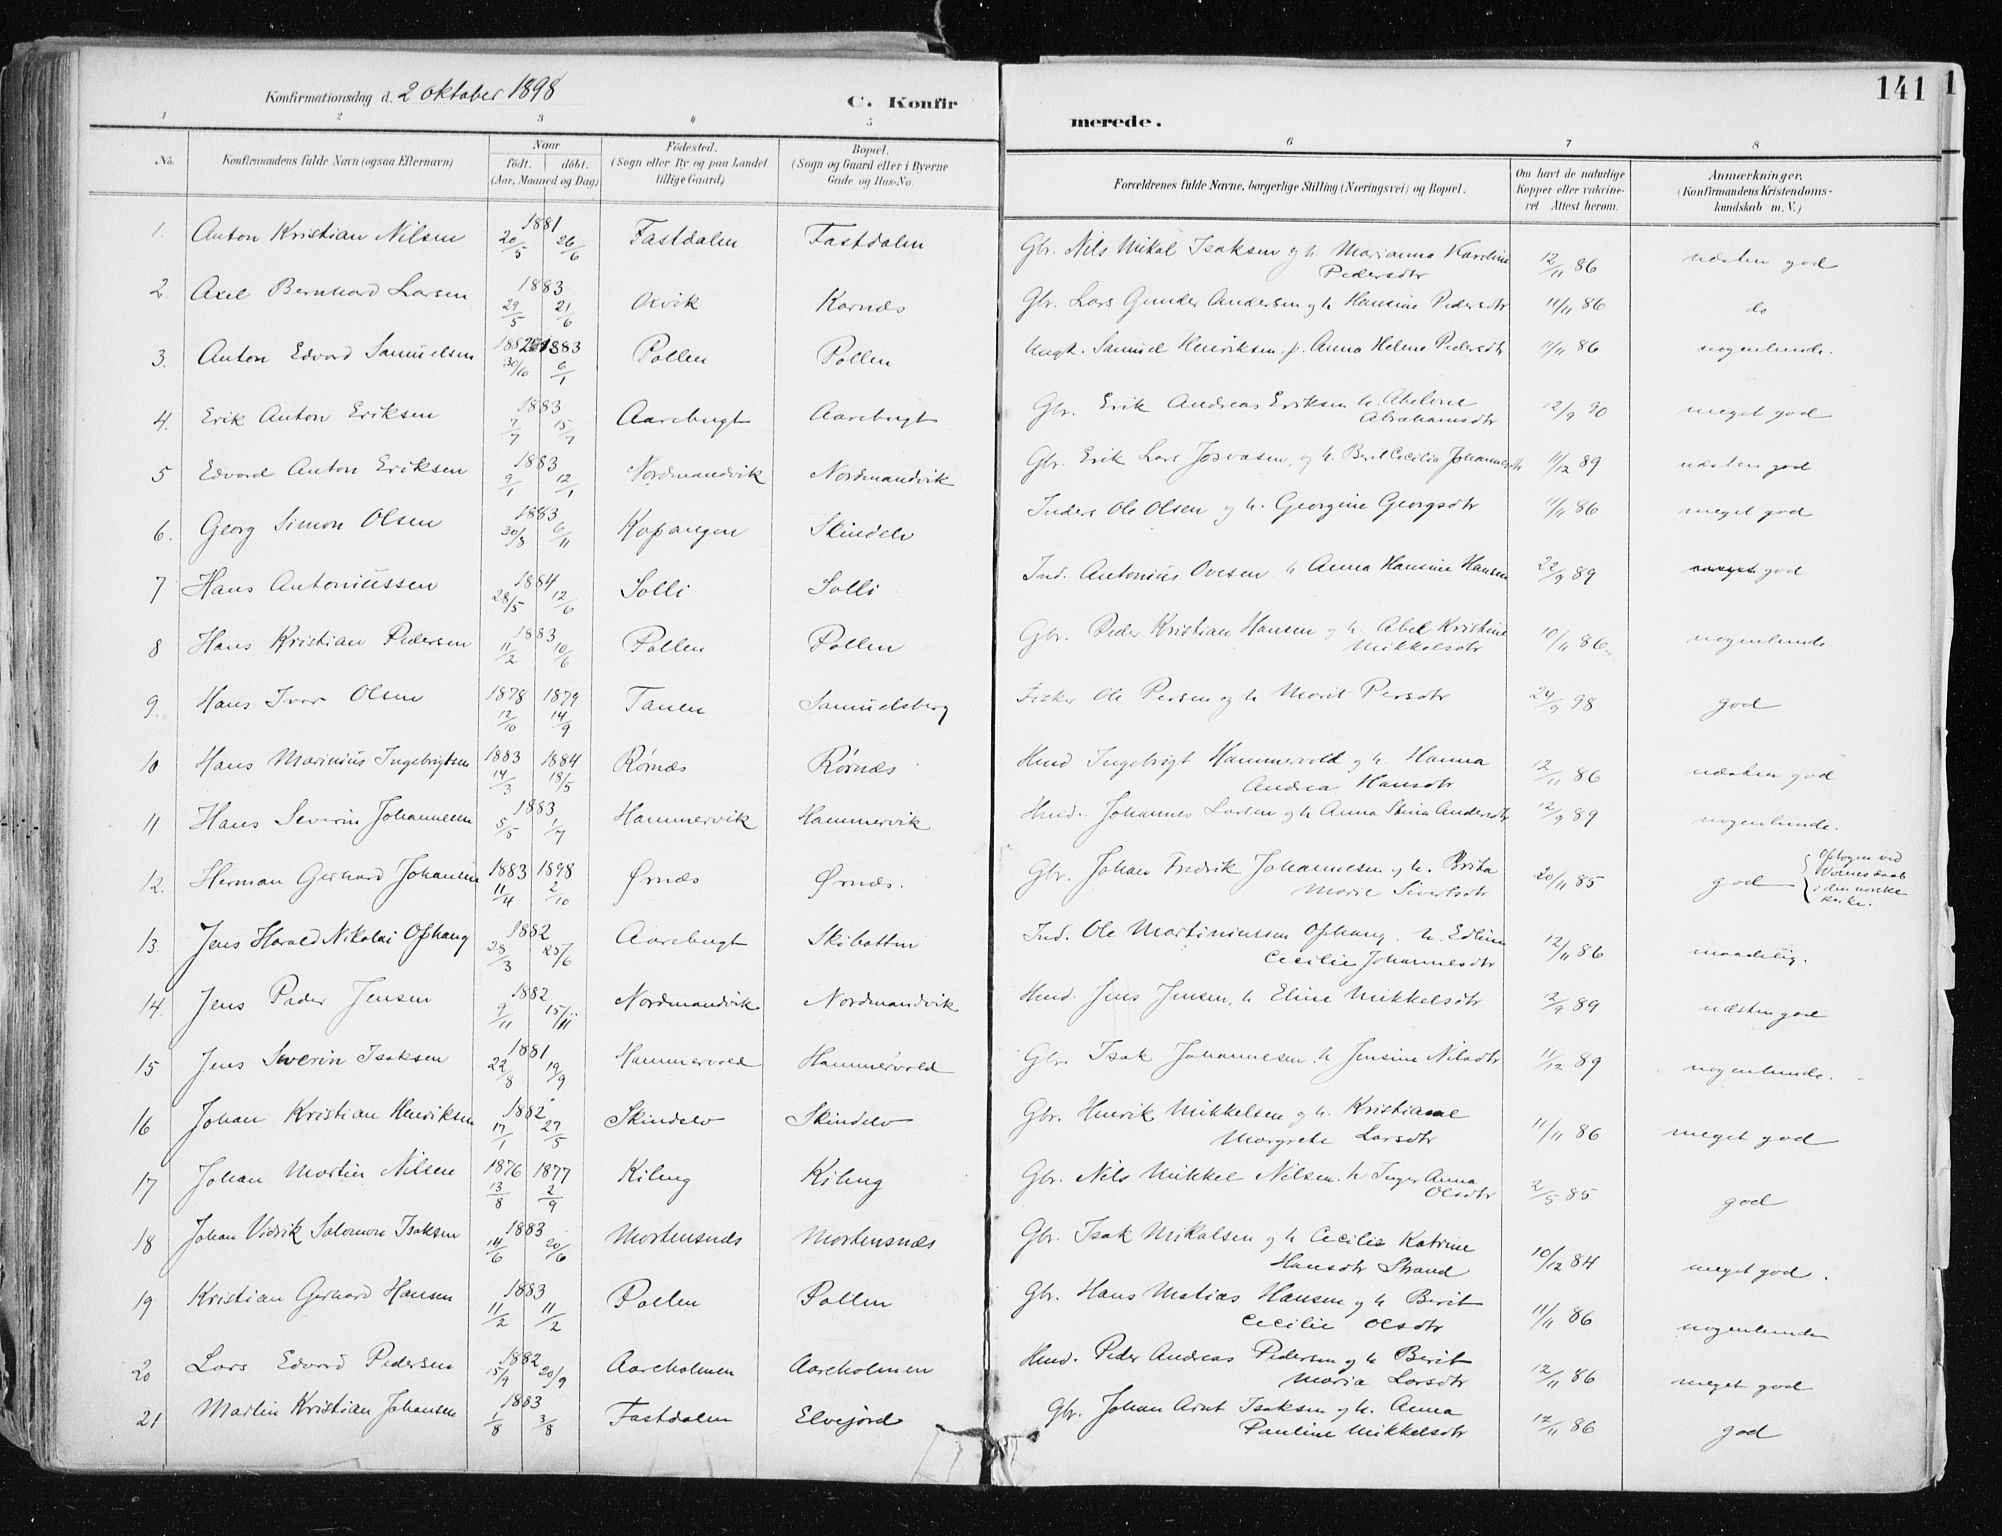 Konfirmationsdag d. 2 oktober 1898
C. Konfir
merede.
141
1 2 3 4 5 6 7 8
No. Konfirmandens fulde Navn (ogsaa Efternavn) Naar født. døbt. (Aar, Maaned og Dag) Fødested. (Sogn eller By og paa Landet tillige Gaard) Bopæl. (Sogn og Gaard eller i Byerne Gade og Hus-No. Forældrenes fulde Navne, borgerlige Stilling (Næringsvei) og Bopæl. Om havt de naturlige Kopper eller vaccineret Attest herom. Anmærkninger. (Konfirmandens Kristendomskundskab m. V.)
1. Anton Kristian Nilsen 1881 20/5 26/6 Fastdalen Fastdalen Gbr. Nils Mikal Isaksen og h. Marianna Karoline Pedersdtr 12/11 86 næsten god
2. Axel Bernhard Larsen 1883 29/5 21/6 Oxvik Karnæs Gbr. Lars Gunder Andersen og h Hansine Pedersdtr 11/11 86 do
3. Anton Edvard Samuelsen 1882 30/10 1883 6/1 Pollen Pollen Ungk. Samuel Henriksen, p. Anna Helene Pedersdtr 11/11 86 nogenlunde.
4. Erik Anton Eriksen 1883 7/7 15/7 Aarebugt Aarebugt Gbr. Erik Andreas Eriksen h. Abeline Abrahamsdtr 12/9 90 meget god
5 Edvard Anton Eriksen 1883 9/1 12/1 Nordmandvik Nordmandvik Gbr. Erik Lars Josvasen, og h. Beret Cecilia Johannesdtr 11/12 89 næsten god
6. Georg Simon Olsen 1883 30/8 6/11 Kopangen Skindelv Inders Ole Olsen og h. Georgine Georgsdtr 11/11 86 meget god
7 Hans Antoniussen 1884 28/5 12/6 Solli Solli Ind. Antonius Ovesen h Anna Hansine Hansen 22/9 89 god
8 Hans Kristian Pedersen 1883 11/2 10/6 Pollen Pollen Gbr. Peder Kristian Hansen og h. Abel Kristine Mikkelsdtr 10/11 86 nogenlunde
9. Hans Ivar Olsen 1878 12/10 1879 14/9 Tanen Samuelsberg Fisker Ole Persen og h Marit Persdtr 24/9 98 god
10 Hans Marinius Ingebrigtsen 1883 14/3 1884 18/5 Rørnæs Rørnæs Hmd Ingebrigt Hammervold og h. Hanna Andrea Hansdtr 12/11 86 næsten god
11 Hans Severin Johannesen 1883 5/5 1/7 Hammervik Hammervik Hmd. Johannes Larsen og h Anna Stina Andersdtr 12/9 89 nogenlunde.
12. Herman Gerhard Johansen 1883 11/4 1898 2/10 Ørnæs Ørnæs. Gbr. Johan Fredrik Johannesen og h. Brita Marie Sivertsdtr 20/11 85 god Optagen ved Voxnes daab i den norske kirke.
13. Jens Harald Nikolai Ophang 1882 28/3 25/6 Aarebugt Skibotten Ind. Ole Martiniusen Ophang. h. Edline Cecilie Johannesdtr 12/11 86 maadelig.
14. Jens Peder Jensen 1882 9/11 15/11 Nordmandvik Nordmandvik Hmd. Jens Jensen, h Eline Mikkelsdtr 12/9 89 næsten god
15 Jens Severin Isaksen 1881 22/8 19/9 Hammervold Hammervold Gbr. Isak Johannesen. h Jensine Nilsdtr 11/12 89 nogenlunde.
16 Johan Kristian Henriksen 1882 17/1 27/5 Skindelv Skindelv Gbr. Henrik Mikkelsen og h. Kristiane Margrete Larsdtr 11/11 86 meget god
17 Johan Martin Nilsen 1876 13/8 1877 2/9 Kiling Kiling Gbr. Nils Mikkel Nilsen. h Inger Anna Olsdtr 2/5 85 god
18 Johan Vidrik Salomon Isaksen 1883 14/6 20/6 Mortensnæs Mortensnæs Gbr. Isak Mikalsen og h Cecilie Katrine Hansdtr Strand 10/12 84 meget god.
19 Kristian Gerhard Hansen 1883 11/2 11/2 Pollen Pollen Gbr. Hans Matias Hansen og h Berit Cecilie Olsdtr 11/11 86 nogenlunde
20 Lars Edvard Pedersen 1882 15/9 20/9 Aareholmen Aareholmen Hmd. Peder Andreas Pedersen og h Berit Maria Larsdtr 12/11 86 meget god
21 Martin Kristian Johansen 1883 1/8 3/8 Fastdalen Elvejord Gbr. Johan Arnt Isaksen og h. Anna Pauline Mikkelsdtr 12/11 86 god